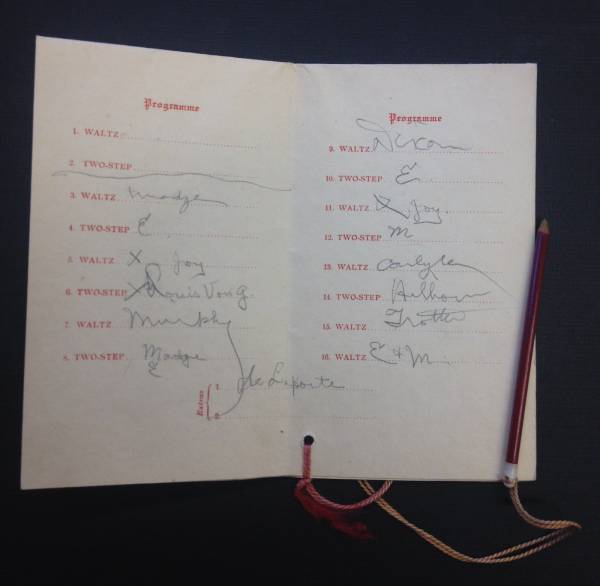 Programme
1. WALTZ
2. TWO-STEP
3. WALTZ Madge
4. TWO-STEP E
5. WALTZ X Joy
6. TWO-STEP X Louis Von G.
7. WALTZ Murphy
8. TWO-STEP Madge
E
Extras
1. de Laporte
2.
Programme
9. WALTZ Dixon
10. TWO-STEP E
11. WALTZ X Joy.
12. TWO-STEP M
13. WALTZ Carlyle
14. TWO-STEP
15. WALTZ Trotter
16. WALTZ E & M